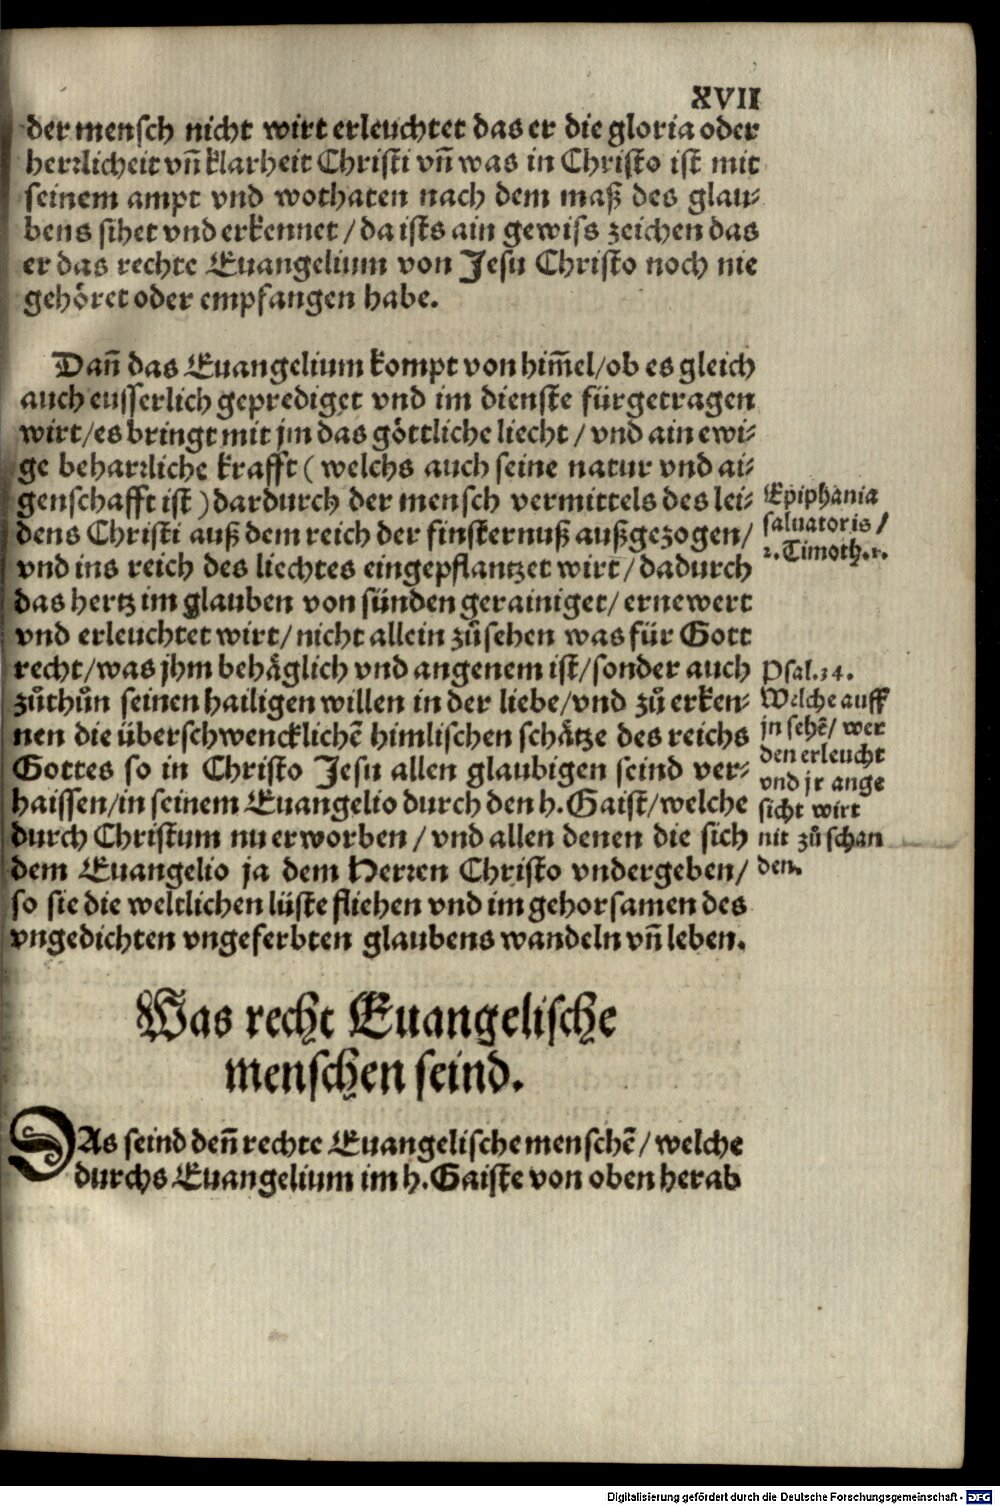 XVII
der mensch nicht wirt erleuchtet das er die gloria oder
herꝛlicheit vñ klarheit Christi vñ was in Christo ist mit
seinem ampt vnd wothaten nach dem maß des glau⸗
bens sihet vnd erkennet / da ists ain gewiss zeichen das
er das rechte Euangelium von Jesu Christo noch nie
gehöret oder empfangen habe.
Dañ das Euangelium kompt von him̃el/ob es gleich
auch eusserlich geprediget vnd im dienste fürgetragen
wirt/es bringt mit jm das göttliche liecht / vnd ain ewi⸗
ge beharꝛliche krafft ( welchs auch seine natur vnd ai⸗
genschafft ist ) dardurch der mensch vermittels des lei⸗
dens Christi auß dem reich der finsternuß außgezogen/
vnd ins reich des liechtes eingepflantzet wirt / dadurch
das hertz im glauben von sünden gerainiget/ ernewert
vnd erleuchtet wirt/ nicht allein zů sehen was für Gott
recht/was jhm behäglich vnd angenem ist/sonder auch
zůthůn seinen hailigen willen in der liebe/vnd zů erken⸗
nen die überschwencklichē himlischen schätze des reichs
Gottes so in Christo Jesu allen glaubigen seind ver⸗
haissen/in seinem Euangelio durch den h. Gaist/welche
durch Christum nu erworben / vnd allen denen die sich
dem Euangelio ja dem Herꝛen Christo vndergeben/
so sie die weltlichen lüste fliehen vnd im gehorsamen des
vngedichten vngeferbten glaubens wandeln vñ leben.
Epiphania
saluatoris /
2. Timoth. 1.
Psal. 34.
Welche auff
jn sehē/ wer
den erleucht
vnd jr ange
sicht wirt
nit zů schan
den.
Was recht Euangelische
menschen seind.
DAs seind deñ rechte Euangelische menschē / welche
durchs Euangelium im h. Gaiste von oben herab
Digitalisierung gefördert durch die Deutsche Forschungsgemeinschaft - DFG